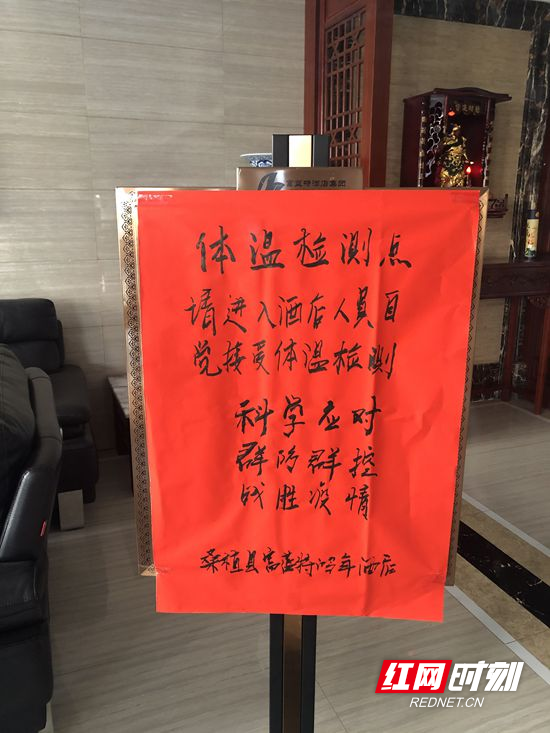 富蓝特酒店集团
体温检测点
请进入酒店人员自
觉接受体温检测
科学应对
群防群控
战胜疫情
桑植县富蓝特鸿年酒店
红网时刻
REDNET.CN